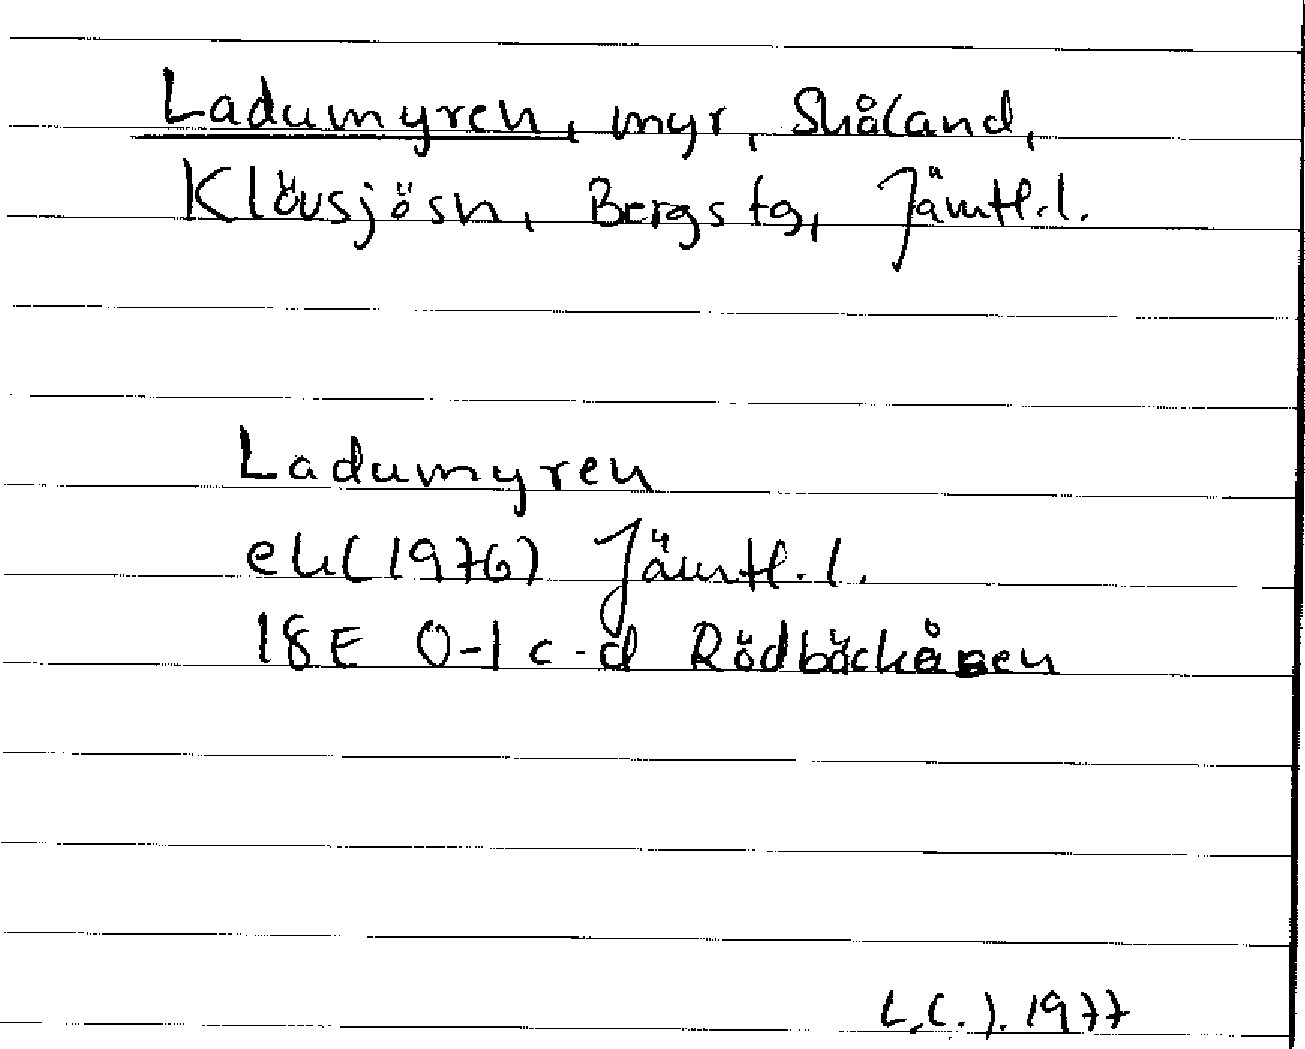 Ladumyren, myr, Skåland,
Klövsjö sn, Bergs tg, Jämtl.l.
Ladumyren
ek(1976) Jämtl.l.
18E 0-1 c-d Rödbäckåsen
1977